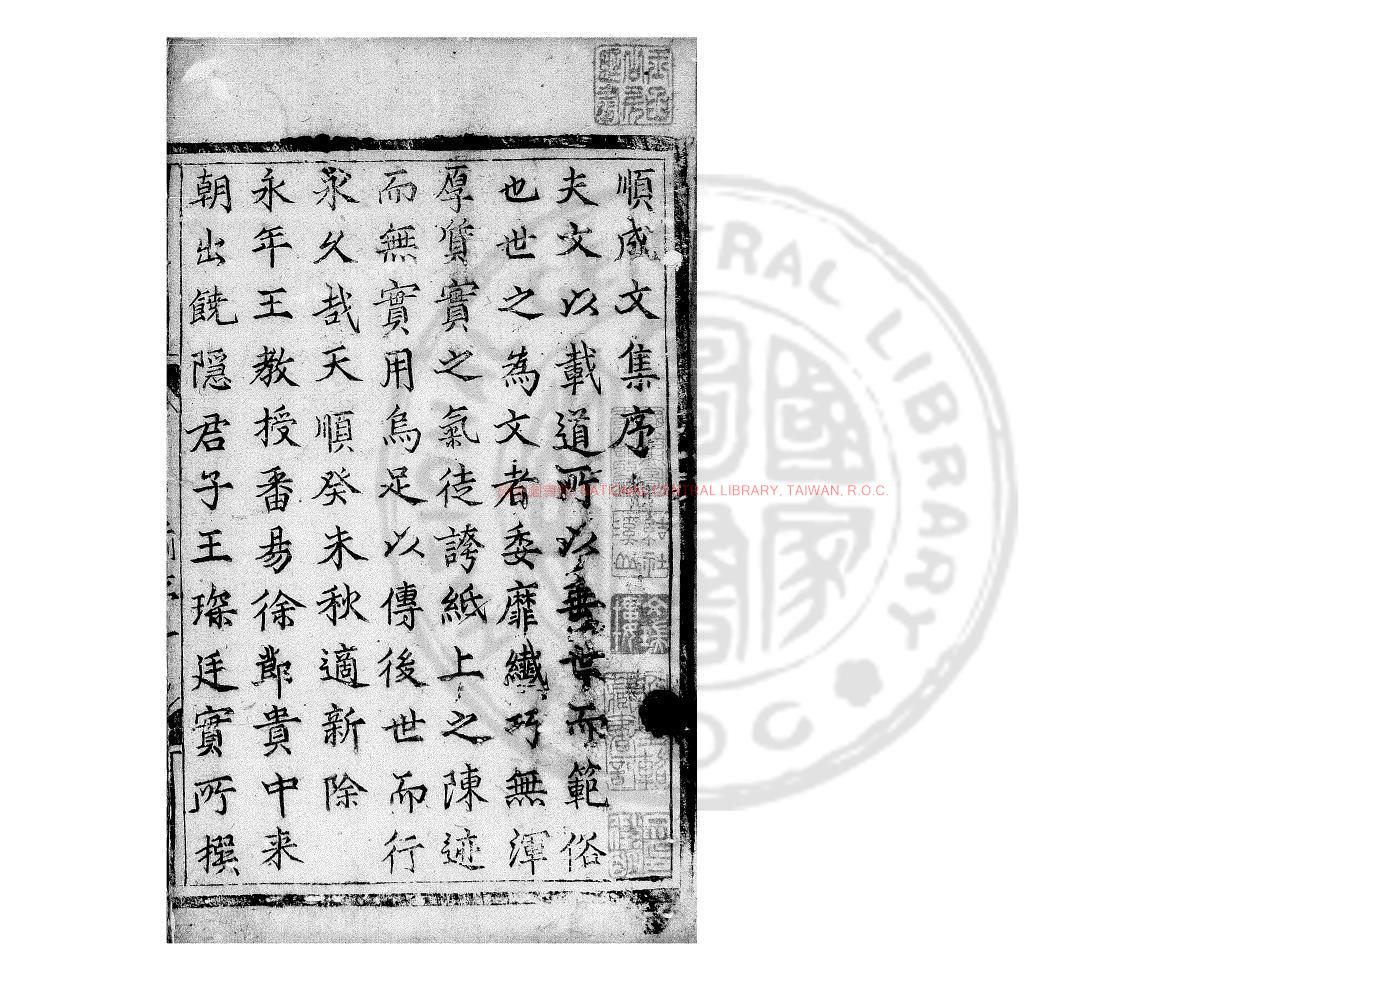 順成文集序
夫文以載道所以垂世而範俗
也世之為文者委靡纖巧無渾
厚質實之氣徒誇紙上之陳迹
而無實用烏足以傳後世而行
永久哉天順癸未秋適新除
永年王教授番昜徐郎貴中来
朝出饒隠君子王琛廷實所撰
NATIONAL CENTRAL LIBRARY, TAIWAN, R.O.C.